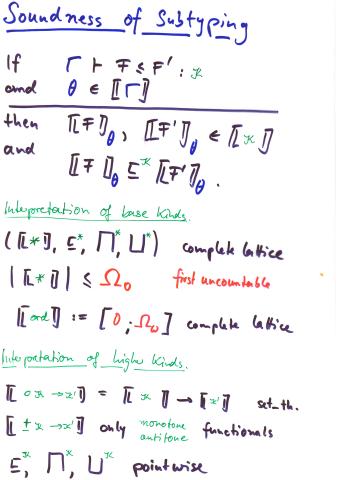 Soundness of Subtyping
If Γ ⊢ F ≤ F' : κ
and θ ∈ ⟦Γ⟧
then ⟦F⟧θ, ⟦F'⟧θ ∈ ⟦κ⟧
and ⟦F⟧θ ⊑^κ ⟦F'⟧θ .
Interpretation of base kinds.
(⟦*⟧, ⊑*, ⊓*, ⊔*) complete lattice
|⟦*⟧| ≤ Ω₀ first uncountable
⟦ord⟧ := [0 ; Ω_ω] complete lattice
Interpretation of higher kinds.
⟦∘κ → κ'⟧ = ⟦κ⟧ → ⟦κ'⟧ set-th.
⟦±κ → κ'⟧ only monotone antitone functionals
⊑^κ, ⊓^κ, ⊔^κ pointwise